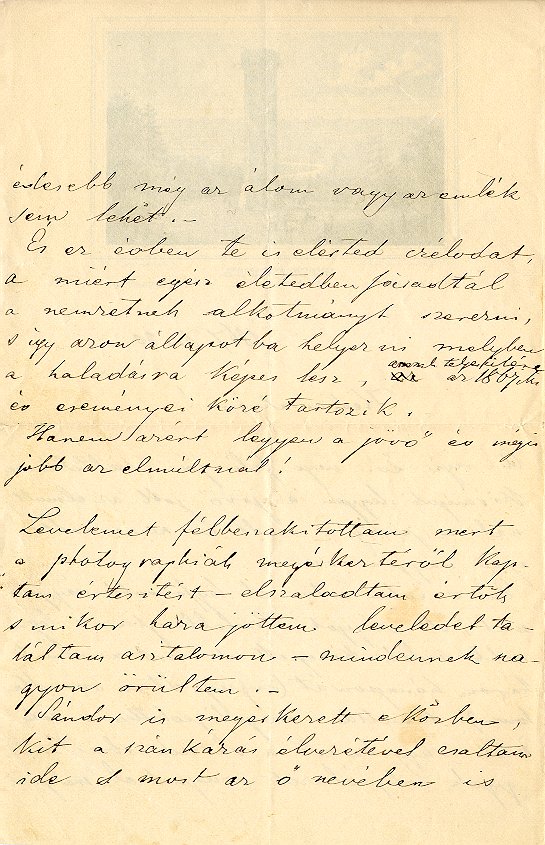 édesebb még az álom vagy az emlék
sem lehet. –
És ez évben te is elérted czélodat,
a miért egész életedben fáradtál
a nemzetnek alkotmányt szerezni,
s így azon állapotba helyezni melyben
a haladásra képes lesz, az 1867iki
év eseményei köré tartozik.
Hanem azért legyen a jövő év mégis
jobb az elmúltnál!
Levelemet félbeszakítottam mert
a photographiák megérkeztéről kap-
tam értesitést – elszaladtam értök
s mikor haza jöttem leveledet ta-
láltam asztalomon – mindennek na-
gyon örültem. –
Sándor is megérkezett eközben,
kit a szánkázás élvezetével csaltam
ide s most az ő nevében is